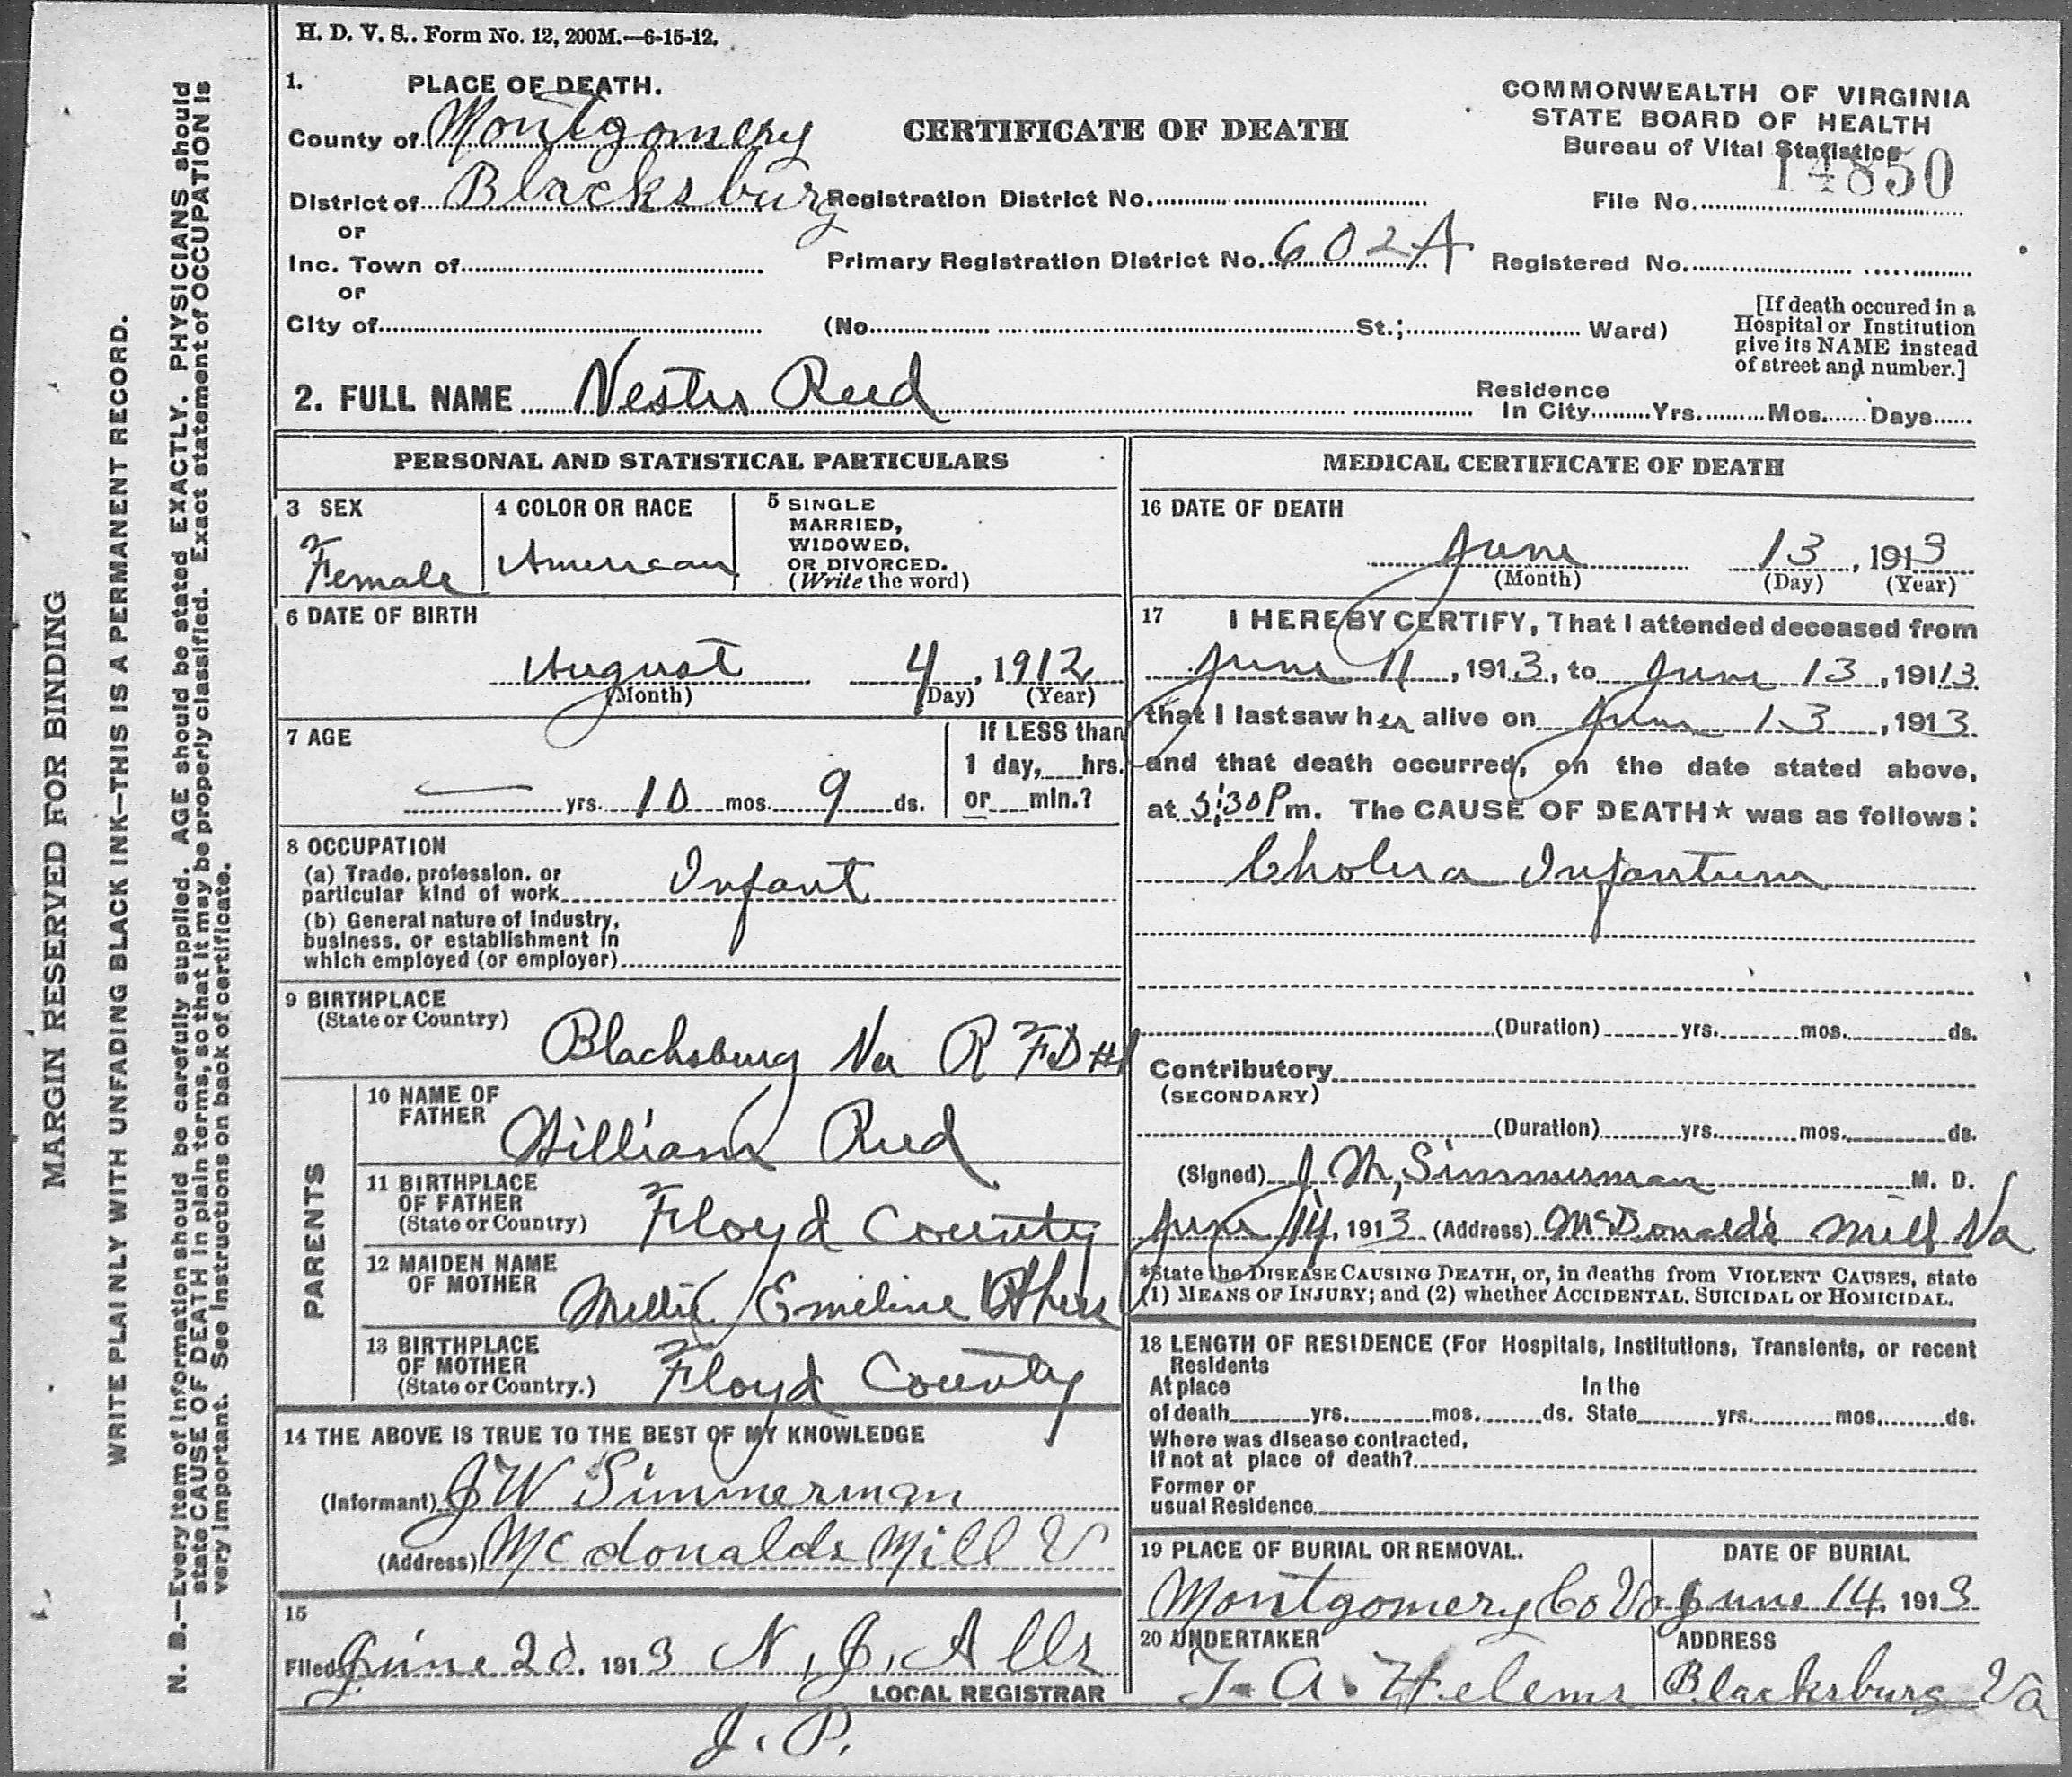 H. D. V. S.. Form No. 12, 200M.—6-15-12.
1. PLACE OF DEATH.
County of Montgomery
District of Blacksburg
or
Inc. Town of
or
City of
CERTIFICATE OF DEATH
COMMONWEALTH OF VIRGINIA
STATE BOARD OF HEALTH
Bureau of Vital Statistics
14850
Registration District No.
File No.
Primary Registration District No. 602A
Registered No.
(No. St.; Ward)
[If death occured in a
Hospital or Institution
give its NAME instead
of street and number.]
2. FULL NAME Vester Reed
Residence
In City Yrs. Mos. Days
PERSONAL AND STATISTICAL PARTICULARS
3 SEX
Female
4 COLOR OR RACE
American
5 SINGLE
MARRIED,
WIDOWED,
OR DIVORCED.
(Write the word)
6 DATE OF BIRTH
August 4, 1912
(Month) (Day) (Year)
7 AGE
— yrs. 10 mos. 9 ds.
If LESS than
1 day, hrs.
or min.?
8 OCCUPATION
(a) Trade, profession, or
particular kind of work Infant
(b) General nature of Industry,
business, or establishment in
which employed (or employer)
9 BIRTHPLACE
(State or Country)
Blacksburg Va R FD #1
PARENTS
10 NAME OF
FATHER
William Reed
11 BIRTHPLACE
OF FATHER
(State or Country) Floyd County
12 MAIDEN NAME
OF MOTHER
Emeline
13 BIRTHPLACE
OF MOTHER
(State or Country.) Floyd County
14 THE ABOVE IS TRUE TO THE BEST OF MY KNOWLEDGE
(Informant) J W Simmerman
(Address) Mcdonalds Mill V
15
Filed June 20, 1913 N. J. Alls
LOCAL REGISTRAR
J. P.
MEDICAL CERTIFICATE OF DEATH
16 DATE OF DEATH
June 13, 1913
(Month) (Day) (Year)
17 I HEREBY CERTIFY, That I attended deceased from
June 11, 1913, to June 13, 19113
that I last saw her alive on June 13, 1913
and that death occurred, on the date stated above,
at 5:30 P m. The CAUSE OF DEATH★ was as follows:
Cholera Infantum
(Duration) yrs. mos. ds.
Contributory
(SECONDARY)
(Duration) yrs. mos. ds.
(Signed) J M, Simmerman M. D.
June 14, 1913 (Address) McDonald's Mill Va
*State the DISEASE CAUSING DEATH, or, in deaths from VIOLENT CAUSES, state
(1) MEANS OF INJURY; and (2) whether ACCIDENTAL, SUICIDAL or HOMICIDAL.
18 LENGTH OF RESIDENCE (For Hospitals, Institutions, Transients, or recent
Residents
At place In the
of death yrs. mos. ds. State yrs. mos. ds.
Where was disease contracted,
If not at place of death?
Former or
usual Residence
19 PLACE OF BURIAL OR REMOVAL.
Montgomery Co Va
DATE OF BURIAL
June 14, 1913
20 UNDERTAKER
T. A. Helems
ADDRESS
Blacksburg Va
MARGIN RESERVED FOR BINDING
WRITE PLAINLY WITH UNFADING BLACK INK—THIS IS A PERMANENT RECORD.
N. B.—Every item of information should be carefully supplied. AGE should be stated EXACTLY. PHYSICIANS should
state CAUSE OF DEATH in plain terms, so that it may be properly classified. Exact statement of OCCUPATION is
very important. See instructions on back of certificate.